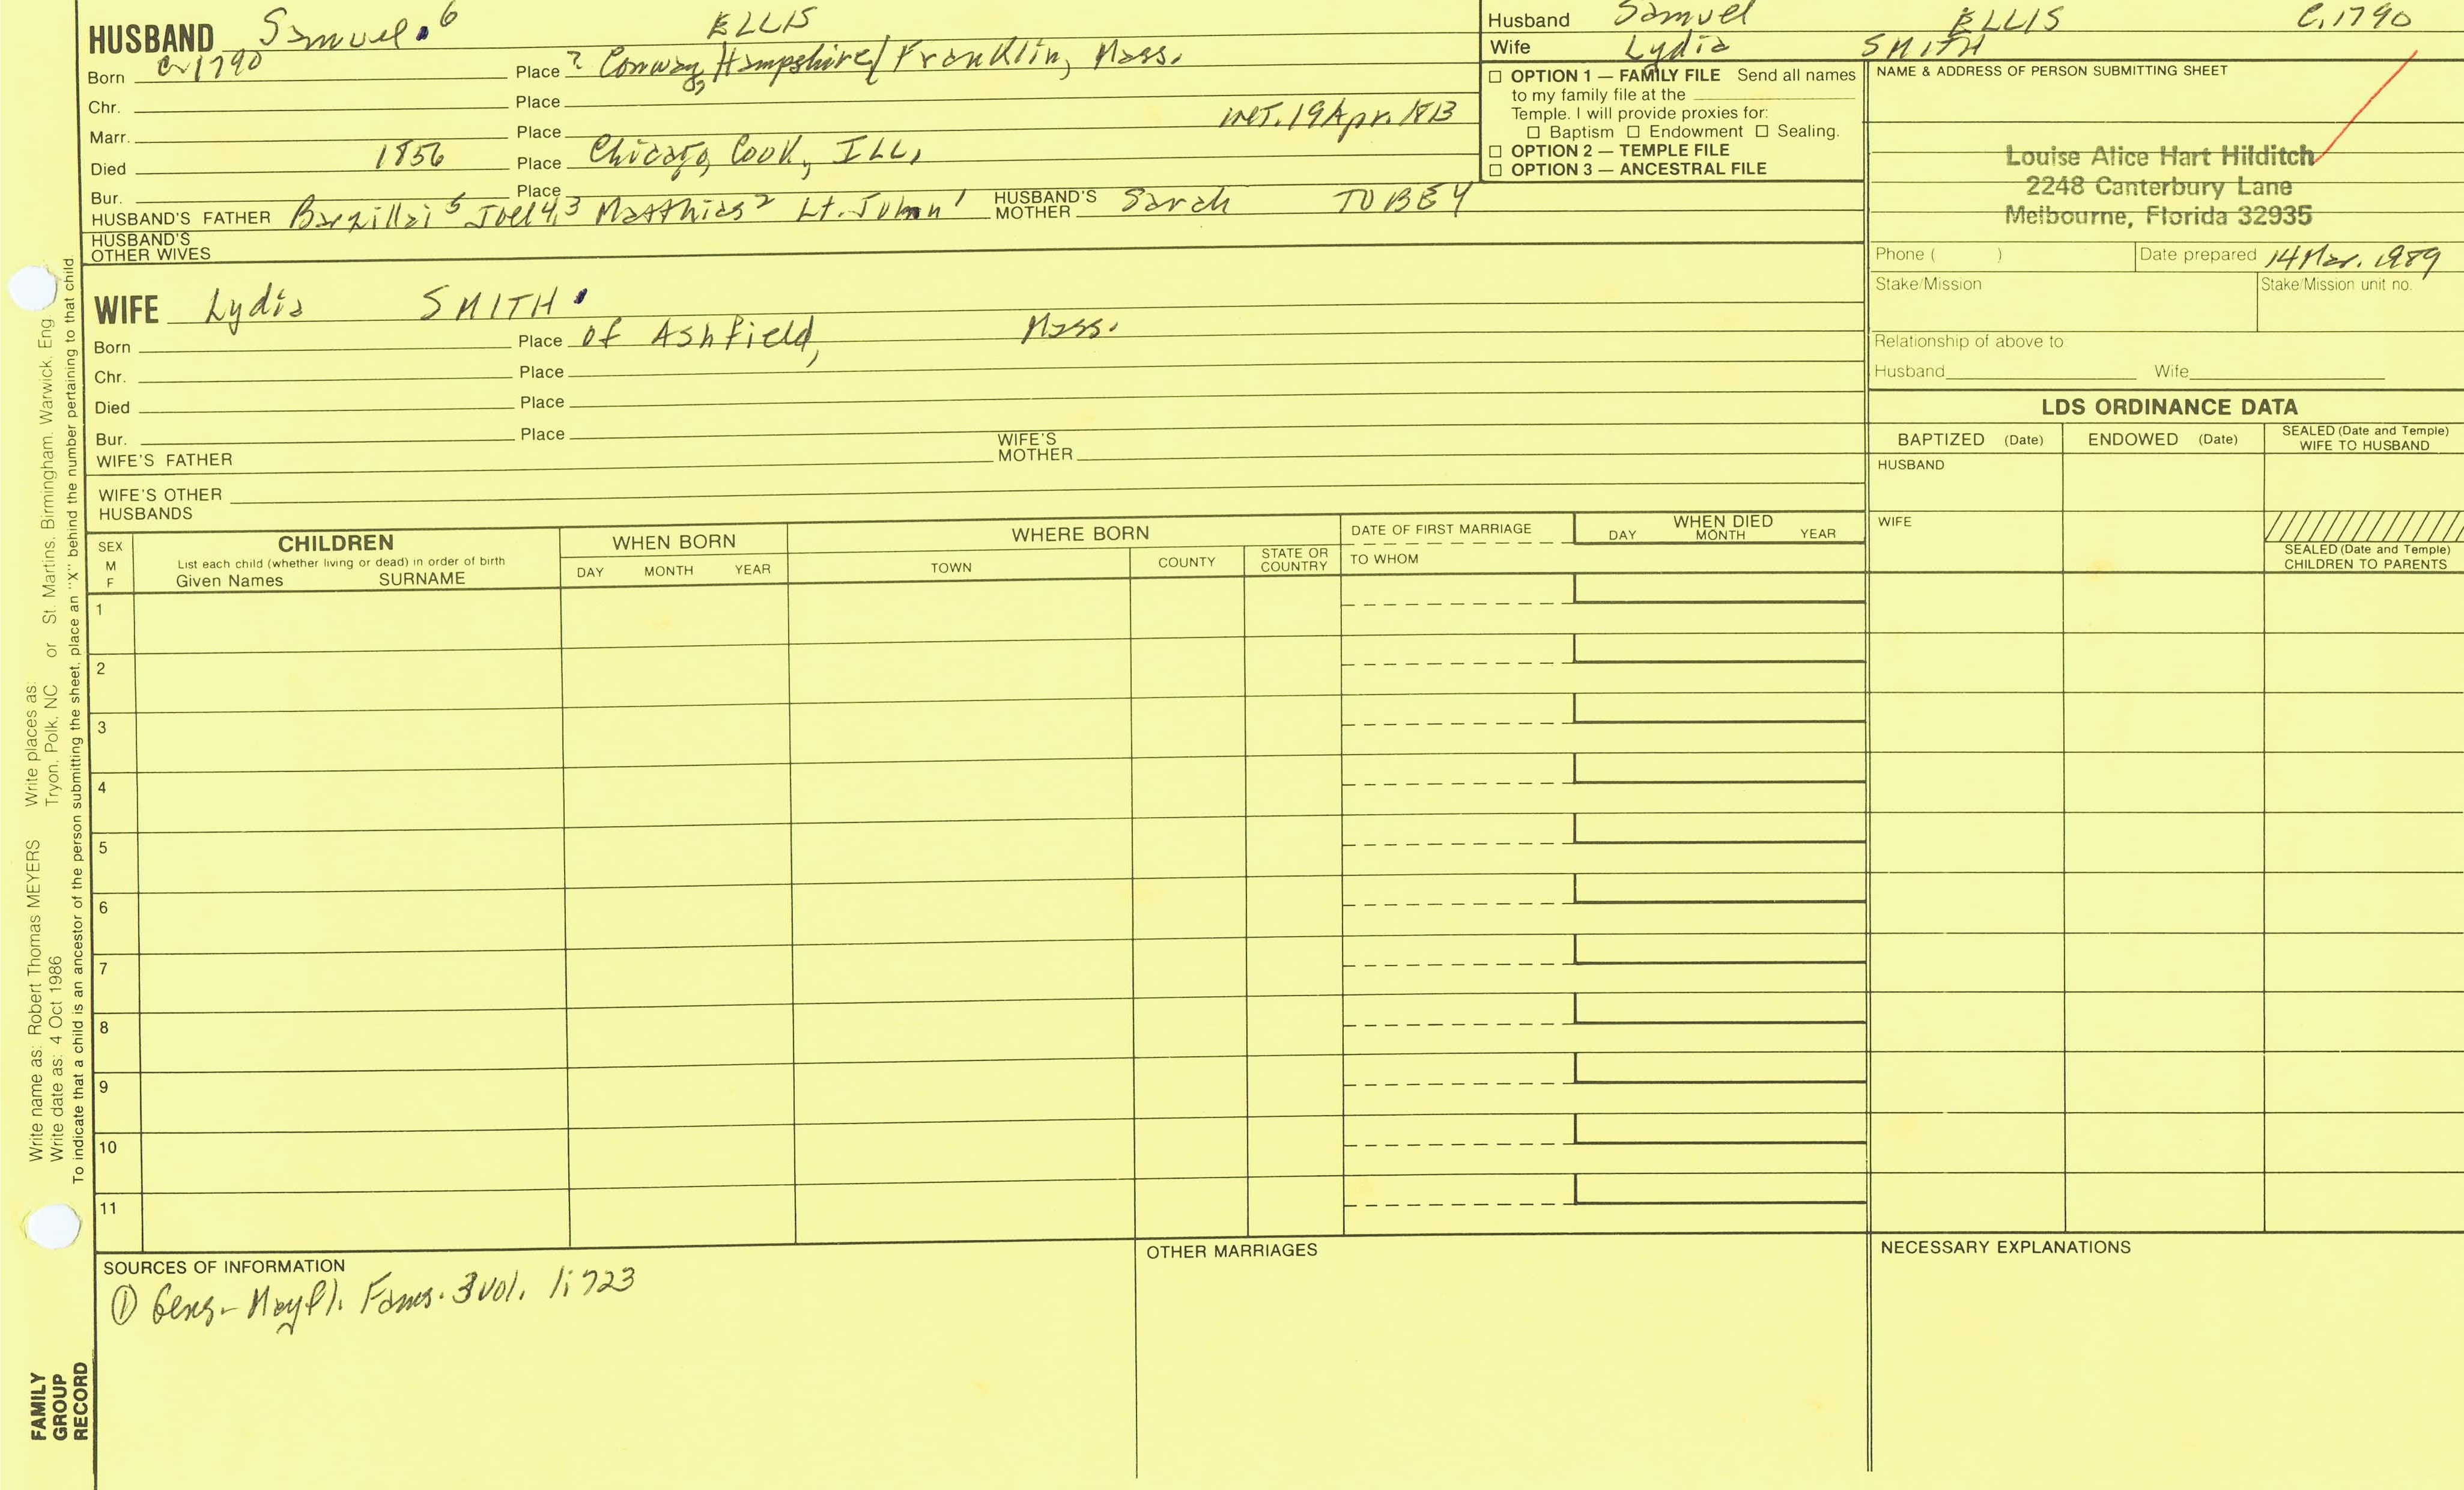 HUSBAND Samuel 6 ELLIS
Born c 1790 Place ? Conway, Hampshire/Franklin, Mass.
Chr. Place
Marr. Place int. 19 Apr. 1813
Died 1856 Place Chicago, Cook, ILL,
Bur. Place
HUSBAND'S FATHER Barzillai 5 Joel 4,3 Matthias 2 Lt. John 1 HUSBAND'S MOTHER Sarah TOBEY
HUSBAND'S OTHER WIVES
WIFE Lydia SMITH
Born Place of Ashfield, Mass.
Chr. Place
Died Place
Bur. Place
WIFE'S FATHER WIFE'S MOTHER
WIFE'S OTHER HUSBANDS
Husband Samuel ELLIS C. 1790
Wife Lydia SMITH
☐ OPTION 1 — FAMILY FILE Send all names
to my family file at the
Temple. I will provide proxies for:
☐ Baptism ☐ Endowment ☐ Sealing.
☐ OPTION 2 — TEMPLE FILE
☐ OPTION 3 — ANCESTRAL FILE
NAME & ADDRESS OF PERSON SUBMITTING SHEET
Louise Alice Hart Hilditch
2248 Canterbury Lane
Melbourne, Florida 32935
Phone ( ) Date prepared 14 Mar. 1989
Stake/Mission Stake/Mission unit no.
Relationship of above to
Husband Wife
LDS ORDINANCE DATA
BAPTIZED (Date) ENDOWED (Date) SEALED (Date and Temple) WIFE TO HUSBAND
HUSBAND
WIFE
SEALED (Date and Temple)
CHILDREN TO PARENTS
SEX M F
CHILDREN
List each child (whether living or dead) in order of birth
Given Names SURNAME
WHEN BORN
DAY MONTH YEAR
WHERE BORN
TOWN COUNTY STATE OR COUNTRY
DATE OF FIRST MARRIAGE
TO WHOM
WHEN DIED
DAY MONTH YEAR
1
2
3
4
5
6
7
8
9
10
11
SOURCES OF INFORMATION
① Gens- Mayfl. Fams. 3 vol. 1:723
OTHER MARRIAGES
NECESSARY EXPLANATIONS
Write name as: Robert Thomas MEYERS Write places as:
Write date as: 4 Oct 1986 Tryon, Polk, NC or St. Martins, Birmingham, Warwick, Eng
To indicate that a child is an ancestor of the person submitting the sheet, place an "X" behind the number pertaining to that child
FAMILY
GROUP
RECORD